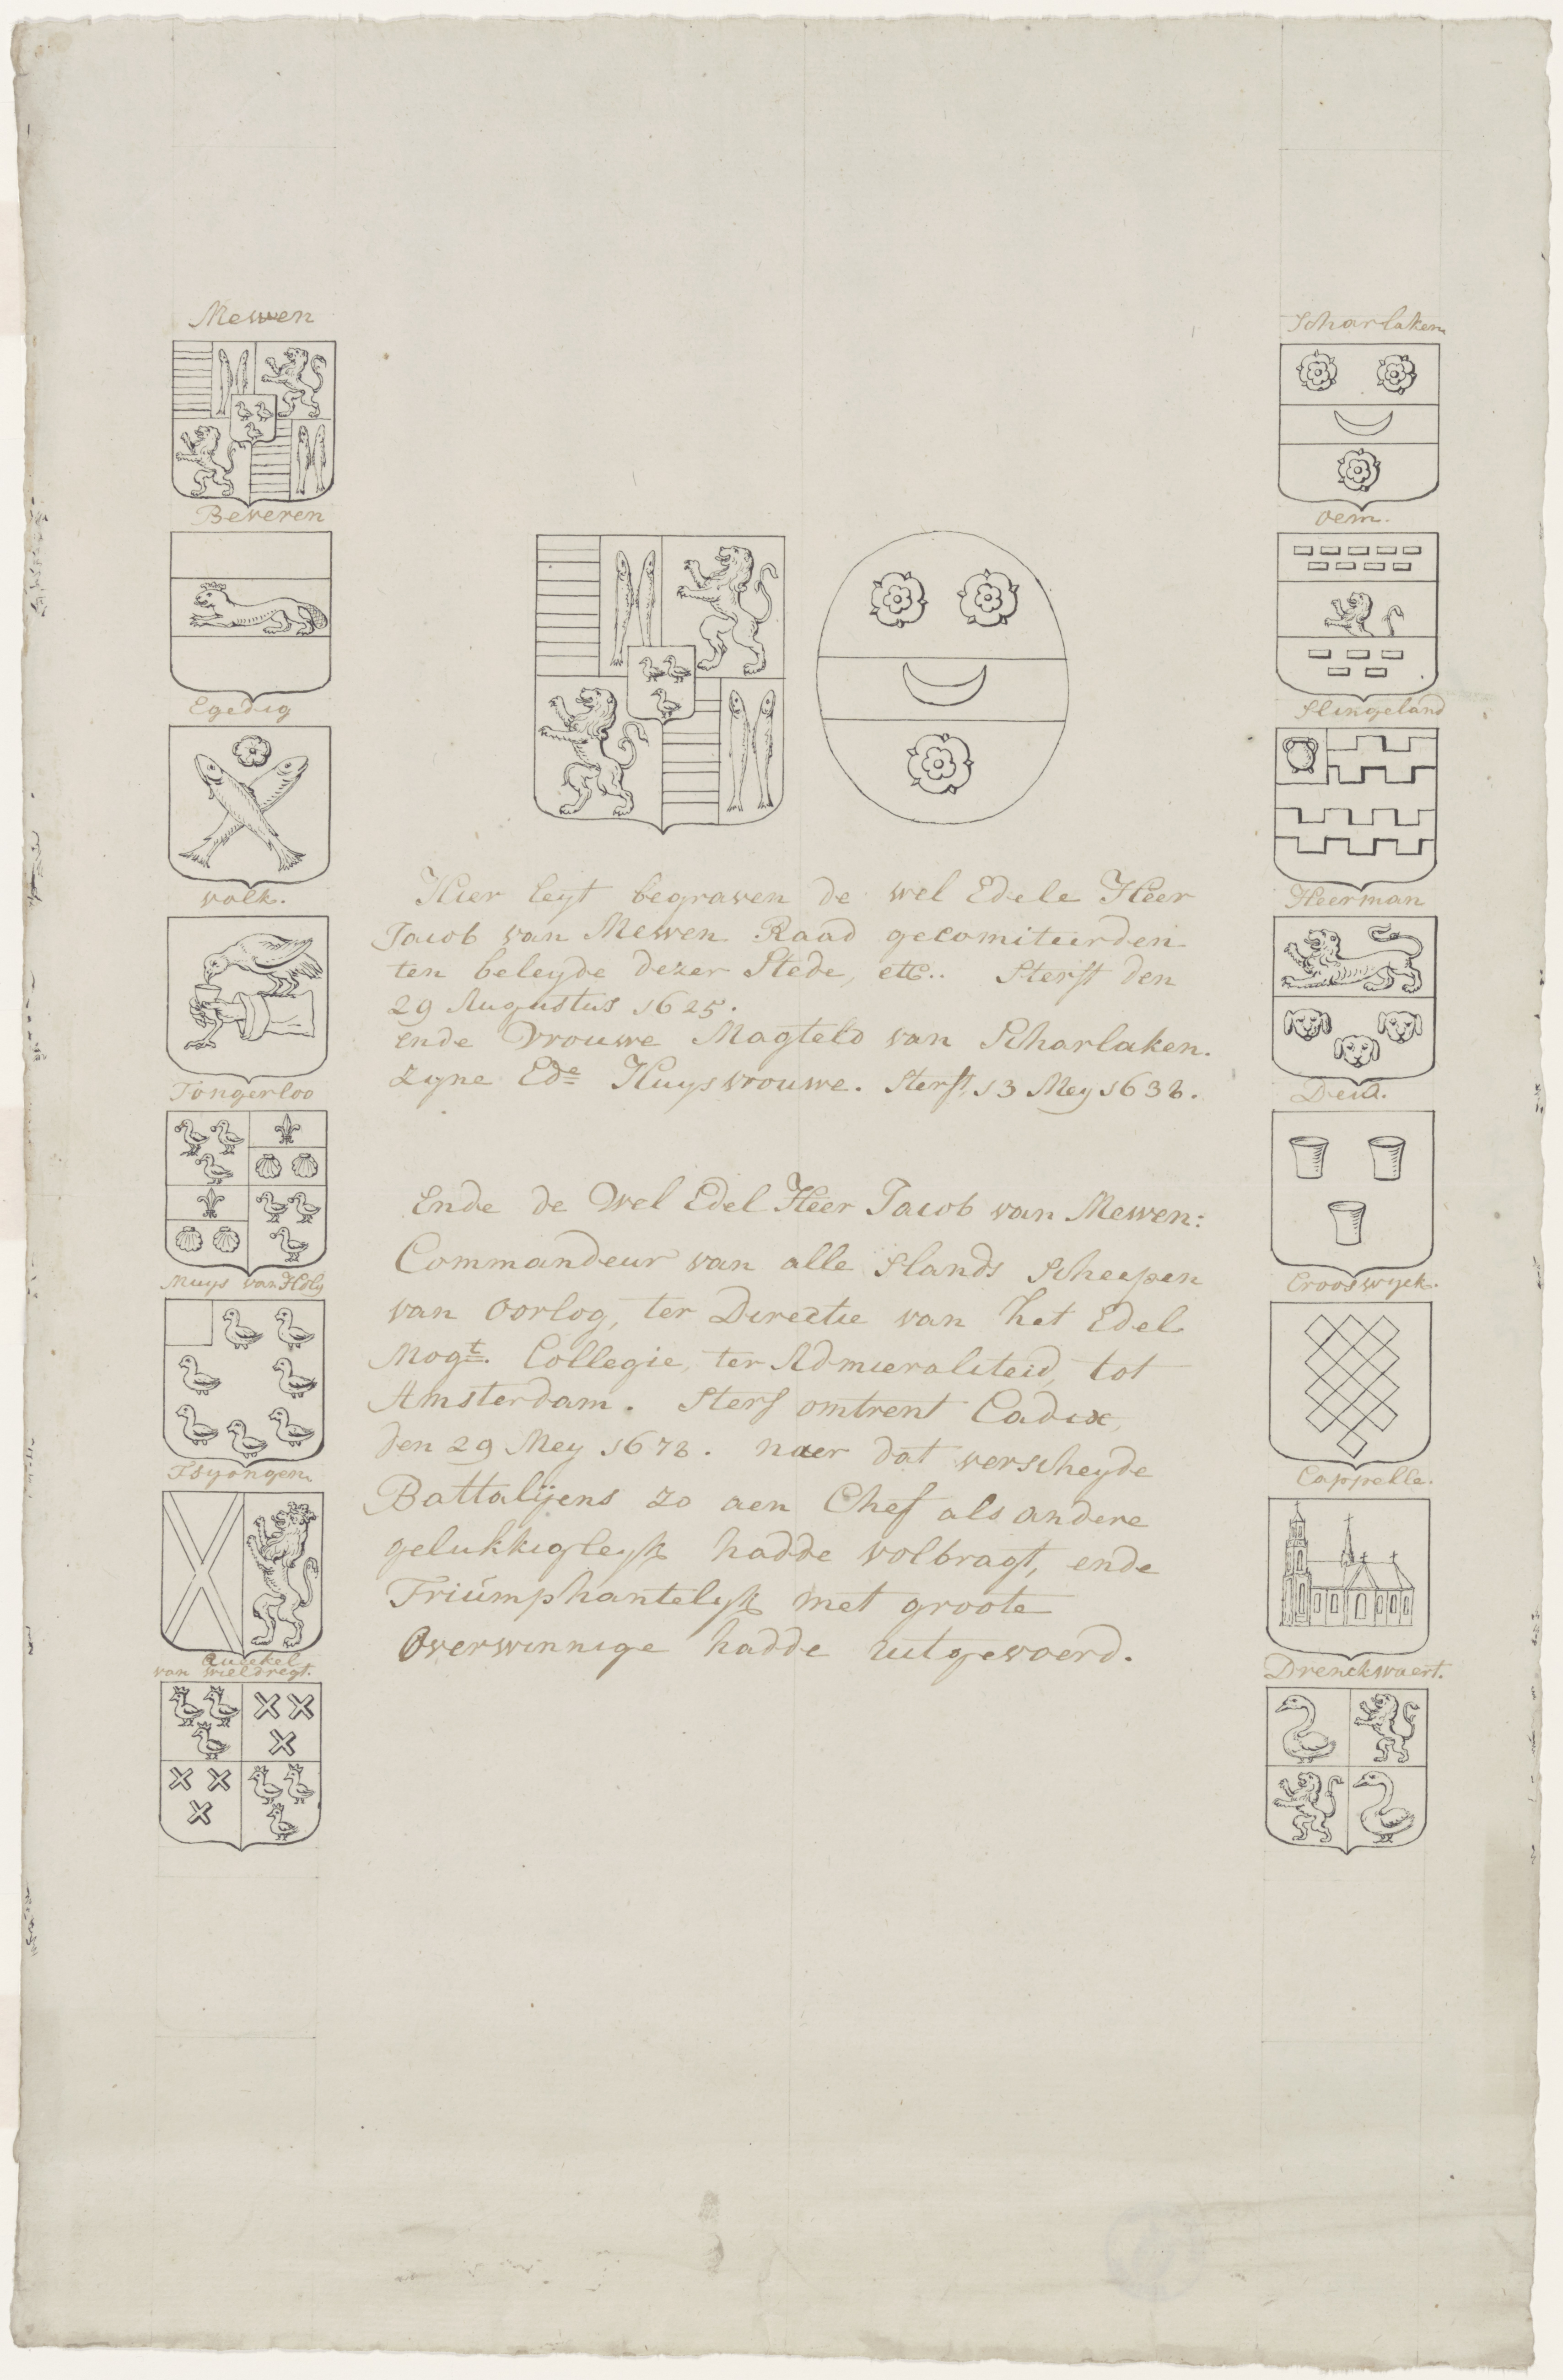 Mewen
Beveren
Egedig
valk.
Tongerloo
Muys van Holy
Tsyongen
Quekel
van Wieldregt.
Scharlaken
Oem.
Slingeland
Heerman
Crooswyck.
Cappelle.
Drenckwaert.
Hier leyt begraven de wel Edele Heer
Jacob van Mewen Raad gecomiteerden
ten beleyde dezer Stede, etc.. Sterft den
29 Augustus 1625.
ende Vrouwe Magteld van Scharlaken.
zyne Ede Huysvrouwe. Sterft, 13 Mey 1638.
Ende de Wel Edel Heer Jacob van Mewen:
Commandeur van alle slands Scheepen
van Oorlog, ter Directie van het Edel
Mogt. Collegie, ter Admieraliteid, tot
Amsterdam. Sterf omtrent Cadix,
den 29 Mey 1678. naer dat verscheyde
Battalijens zo aen Chef als andere
gelukkigleyk hadde volbragt, ende
Triúmphantelyk met groote
Overwinnige hadde uitgevoerd.